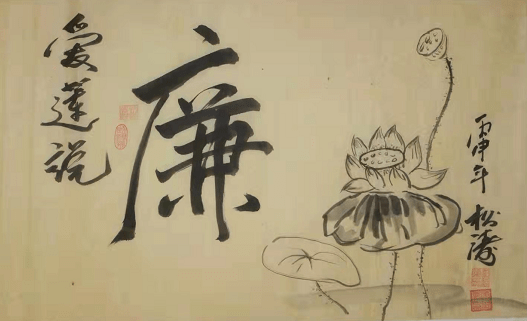 愛蓮説
廉
丙申年
松濤